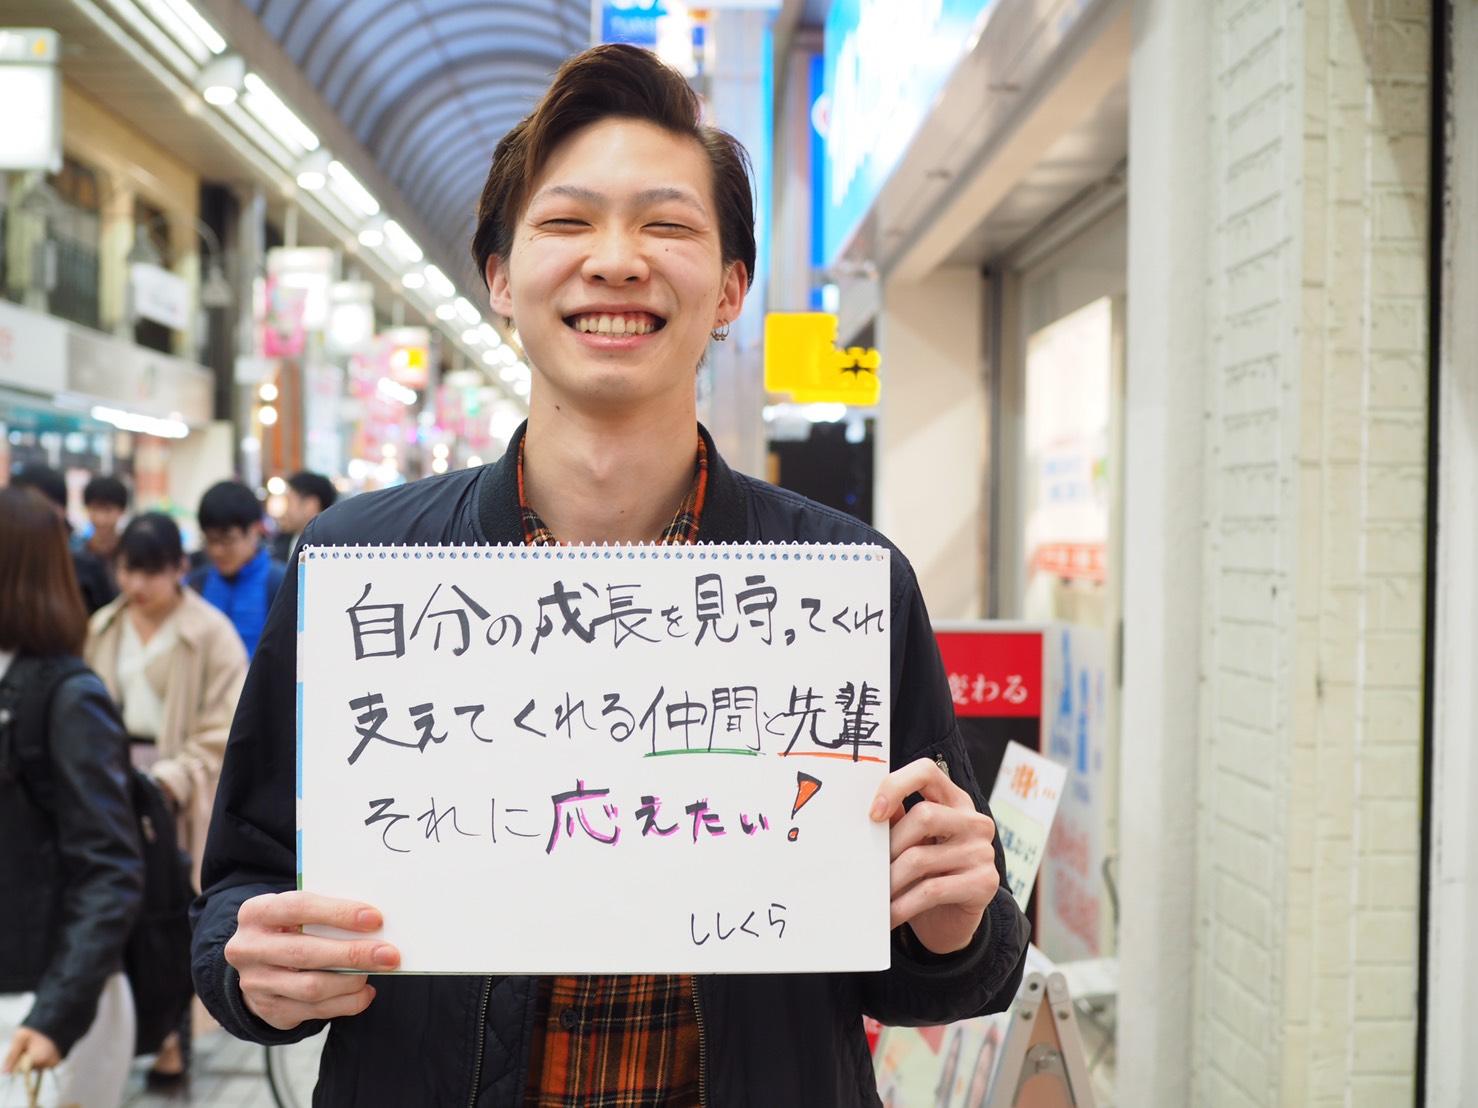 自分の成長を見守ってくれ
支えてくれる仲間と先輩
それに応えたい!
ししくら
変わる